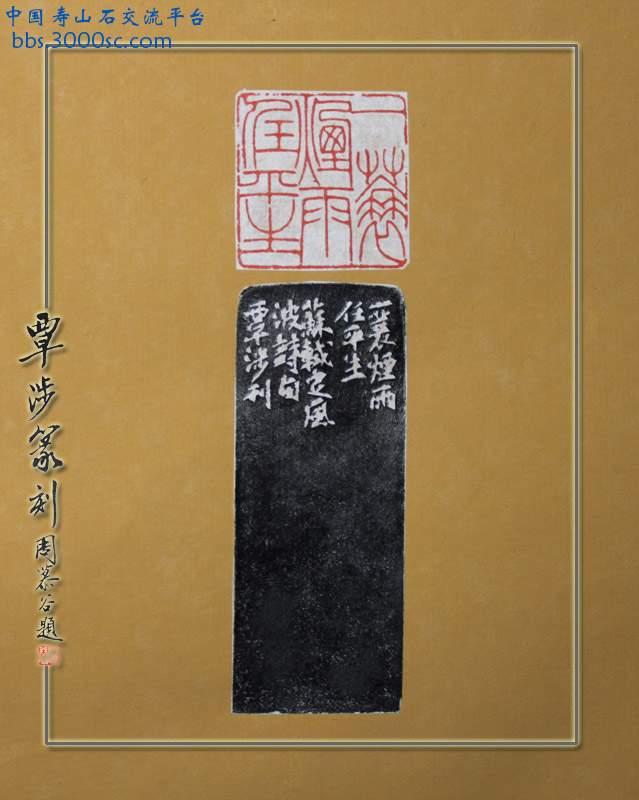 中国寿山石交流平台
bbs.3000sc.com
一蓑
煙雨
任平生
一蓑煙雨
任平生
蘇軾定風
波詩句
覃涉
覃涉篆刻
周慕谷題